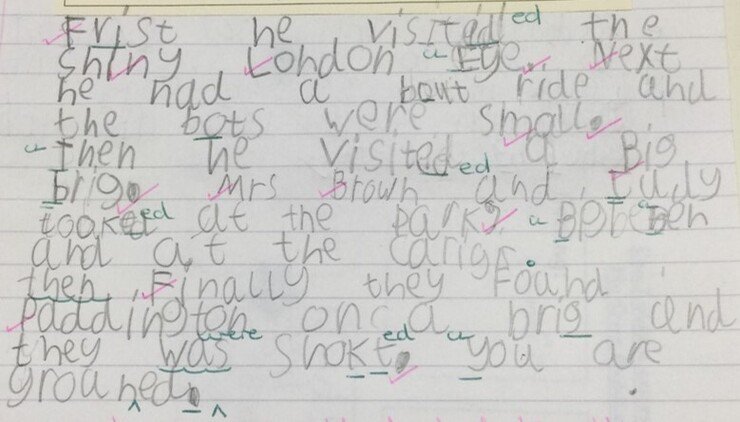 Frist he visited ed the
shiny London Eye. Next
he had a bout ride and
the bots were small.
Then he visited ed a Big
brig. Mrs Brown and Judy
looked ed at the park?
and at the
then. Finally they found
paddington on a brig and
were ed
they was shokt. you are
grouned.